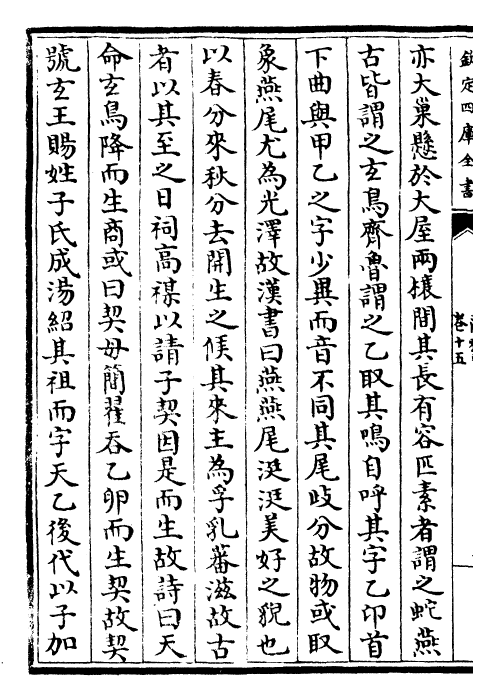 欽定四庫全書
卷十五
亦大巢懸於大屋兩榱間其長有容匹素者謂之蛇燕
古皆謂之玄鳥齊魯謂之乙取其鳴自呼其字乙卬首
下曲與甲乙之字少異而音不同其尾歧分故物或取
象燕尾尤為光澤故漢書曰燕燕尾涏涏美好之貎也
以春分來秋分去開生之候其來主為孚乳蕃滋故古
者以其至之日祠高禖以請子契因是而生故詩曰天
命玄鳥降而生商或曰契母簡翟吞乙卵而生契故契
號玄王賜姓子氏成湯紹其祖而字天乙後代以子加